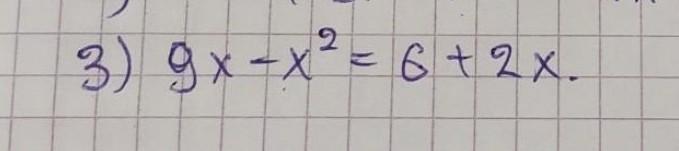 3) 9x - x² = 6 + 2x.